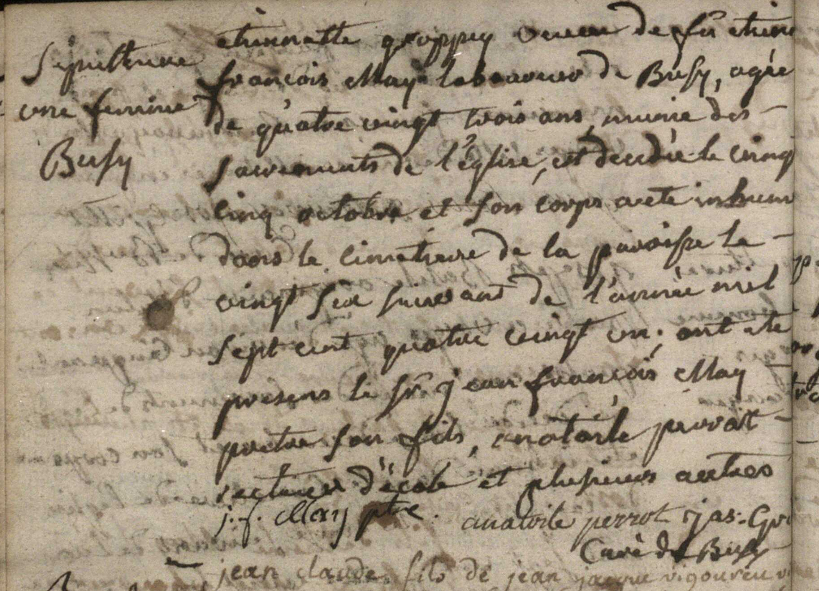 Sepulture
une femme
Busy
etiennette groppey veuve de fû etiene
françois May laboureur de Busy, agée
de quatre vingt trois ans, munie des
sacrements de l'église, est decedée le vingt
cinq octobre et son corps a eté inhumé
dans le cimetiere de la paroisse le
vingt six suivant de l'année mil
sept cent quatre vingt un. ont eté
presens le Sr jean françois May
pretre son fils, anatoile perrot
recteur d'école et plusieurs autres
j. f. May ptre. anatoile perrot jas:
Curé de Busy
jean claude fils de jean jacque vigoureu